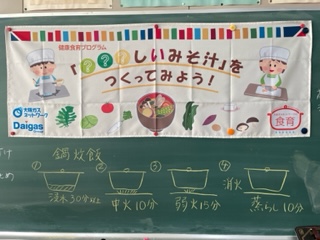 健康食育プログラム
「???しいみそ汁」を
つくってみよう!
大阪ガス
ネットワーク
Daigas
食育
鍋炊飯
① ② ③ ④ 消火
浸水30分以上 中火10分 弱火15分 蒸らし10分